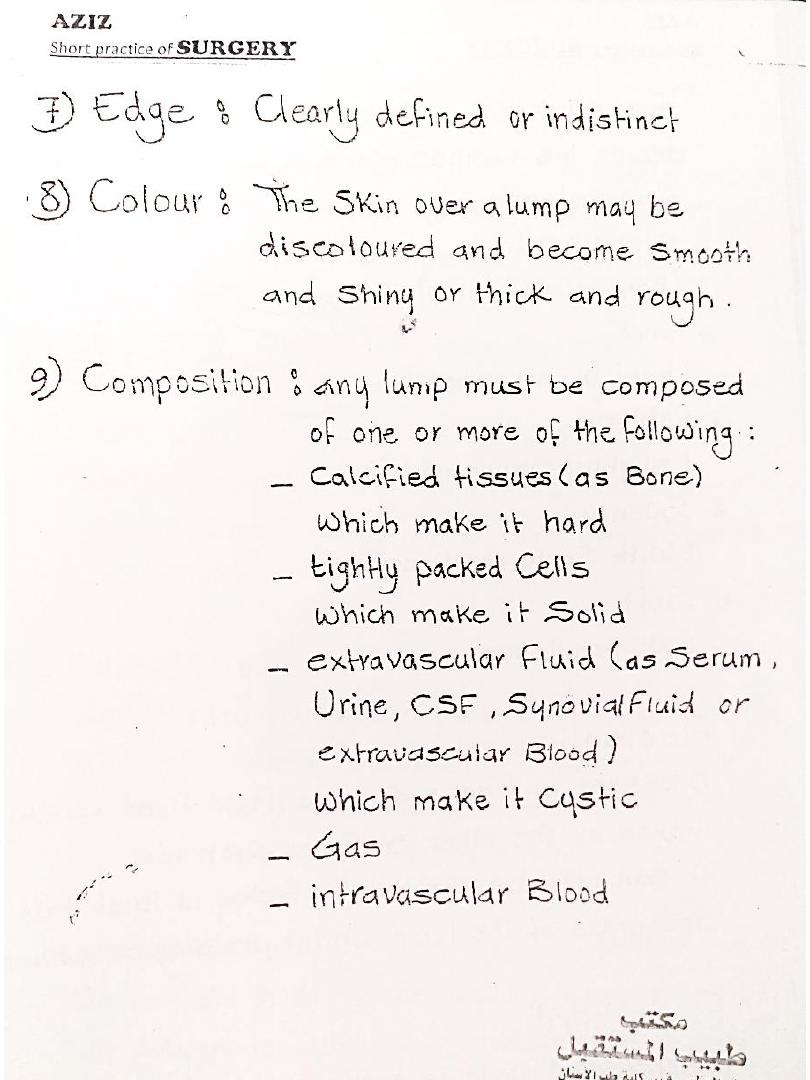 AZIZ
Short practice of SURGERY
7) Edge : Clearly defined or indistinct
8) Colour : The Skin over a lump may be
discoloured and become smooth
and Shiny or thick and rough.
9) Composition : any lump must be composed
of one or more of the following :
- Calcified tissues (as Bone)
Which make it hard
- tightly packed Cells
Which make it Solid
- extravascular Fluid (as Serum,
Urine, CSF, Synovial Fluid or
extravascular Blood)
Which make it Cystic
- Gas
- intravascular Blood
مكتب
طبيب المستقبل
كلية طب الأسنان